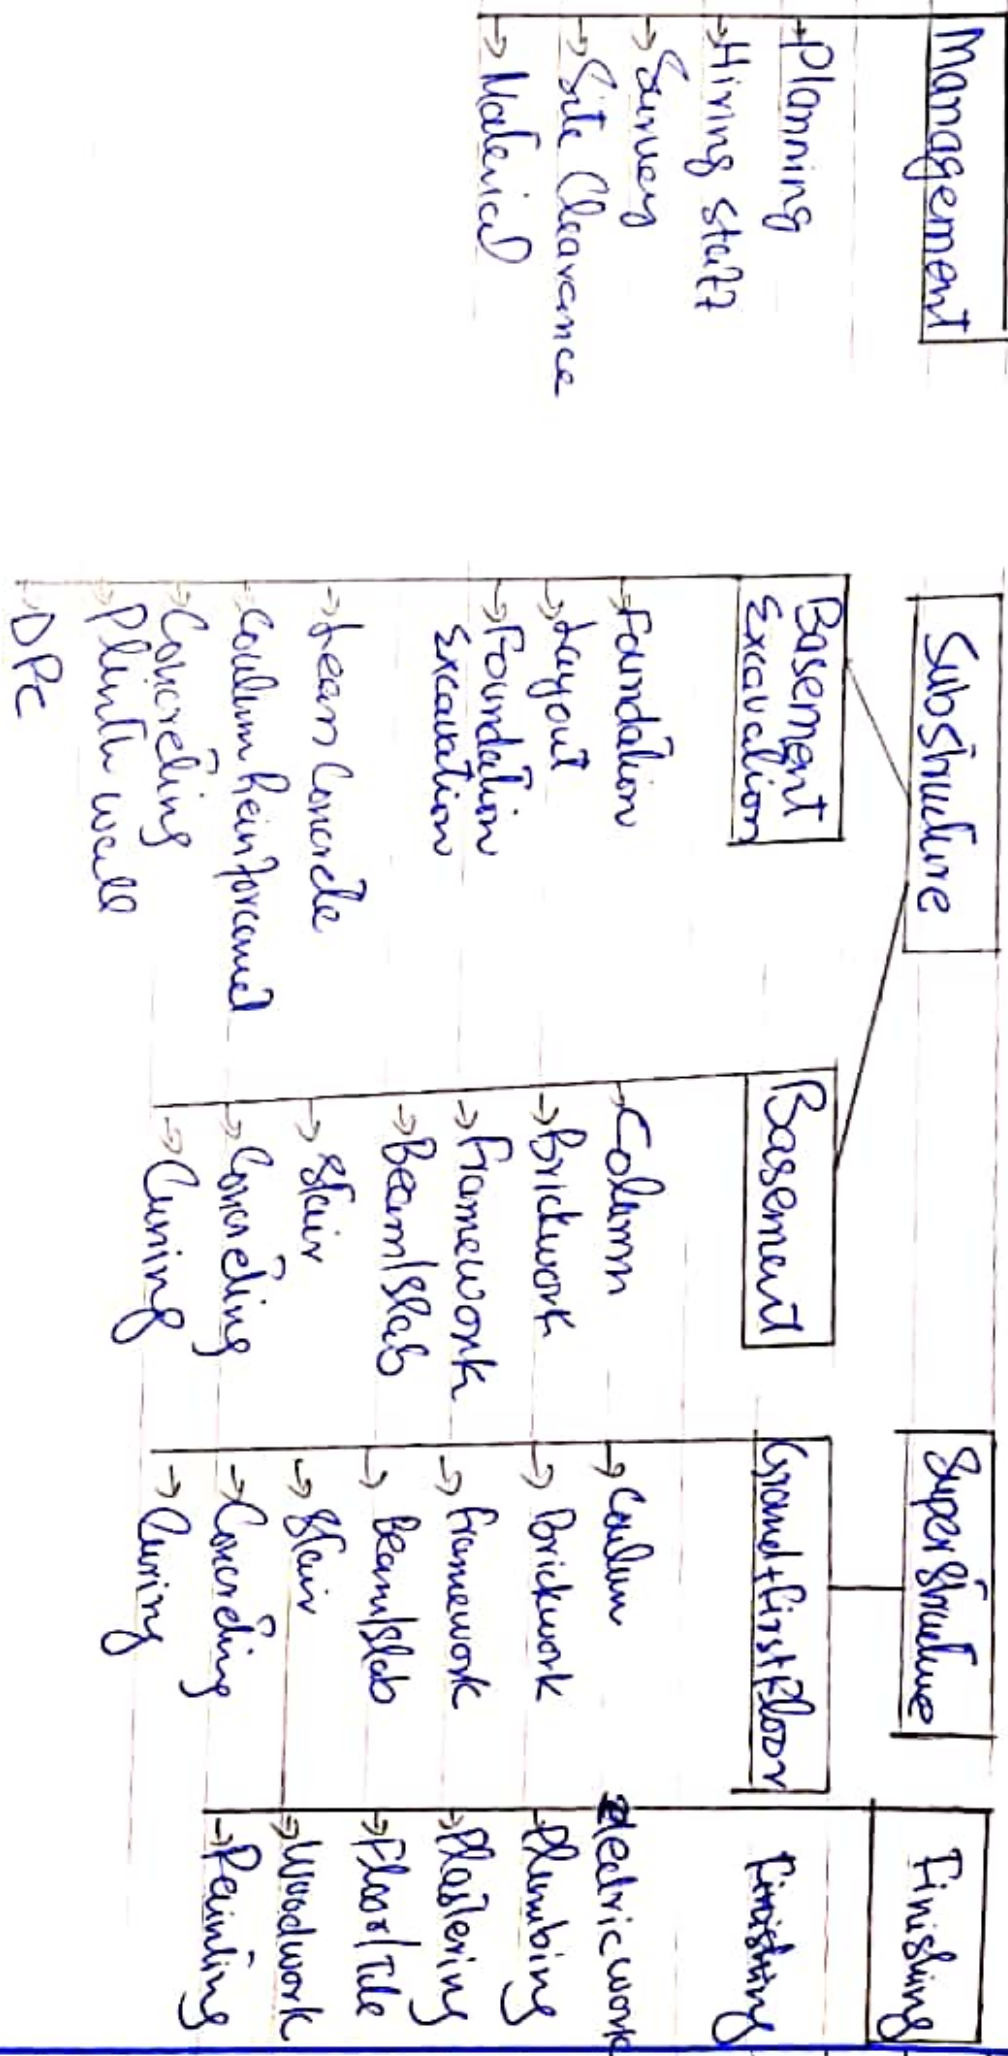 Management
Planning
Hiring staff
Survey
Site Clearance
Material
Substructure
Basement
Excavation
Foundation
Layout
Foundation
Excavation
Lean Concrete
Coulum Reinforcement
Concreting
Plinth wall
DPC
Basement
Column
Brickwork
Framework
Beam/slab
Stair
Concreting
Curing
Super Structure
Ground+First Floor
Coulum
Brickwork
Framework
Beam/slab
Stair
Concreting
Curing
Finishing
Finishing
electric work
Plumbing
Plastering
Floor/Tile
Woodwork
Painting